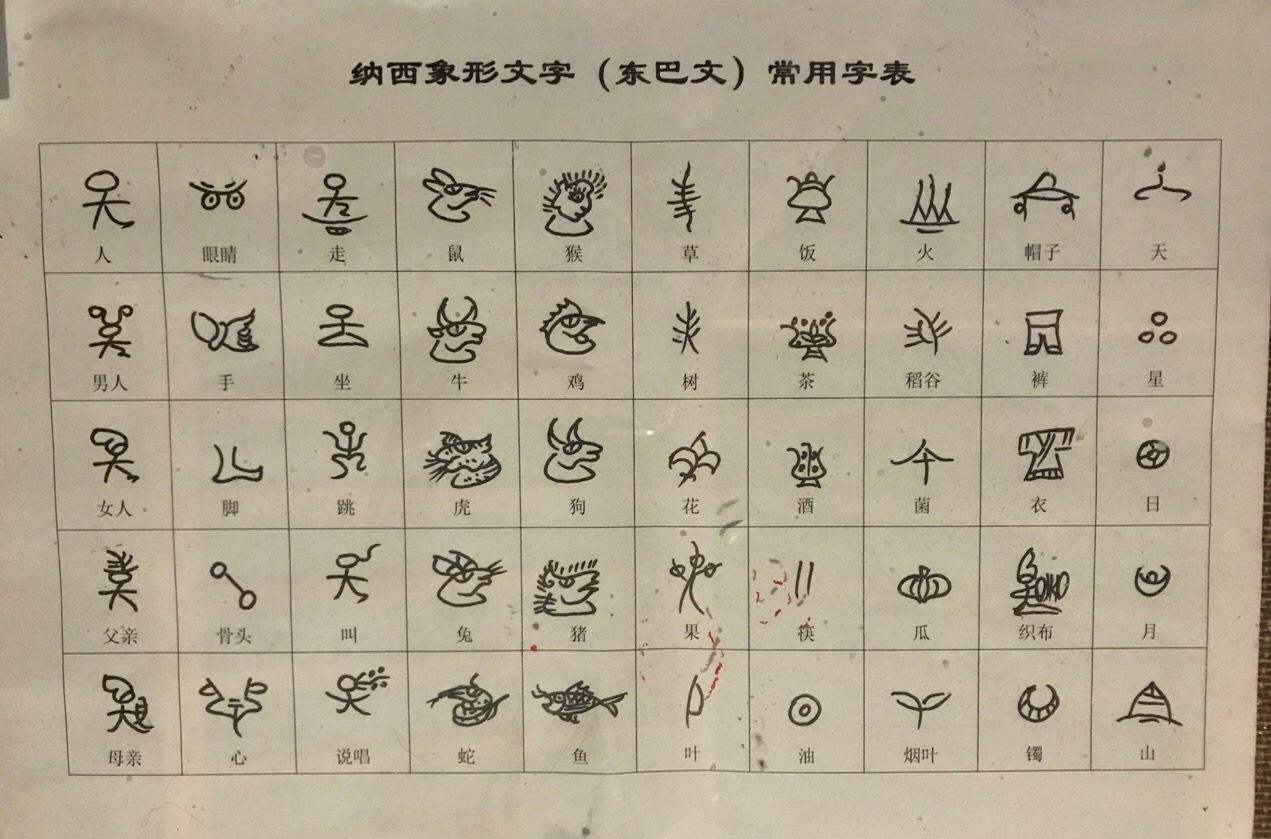 纳西象形文字（东巴文）常用字表
人 眼睛 走 鼠 猴 草 饭 火 帽子 天
男人 手 坐 牛 鸡 树 茶 稻谷 裤 星
女人 脚 跳 虎 狗 花 酒 菌 衣 日
父亲 骨头 叫 兔 猪 果 筷 瓜 织布 月
母亲 心 说唱 蛇 鱼 叶 油 烟叶 镯 山